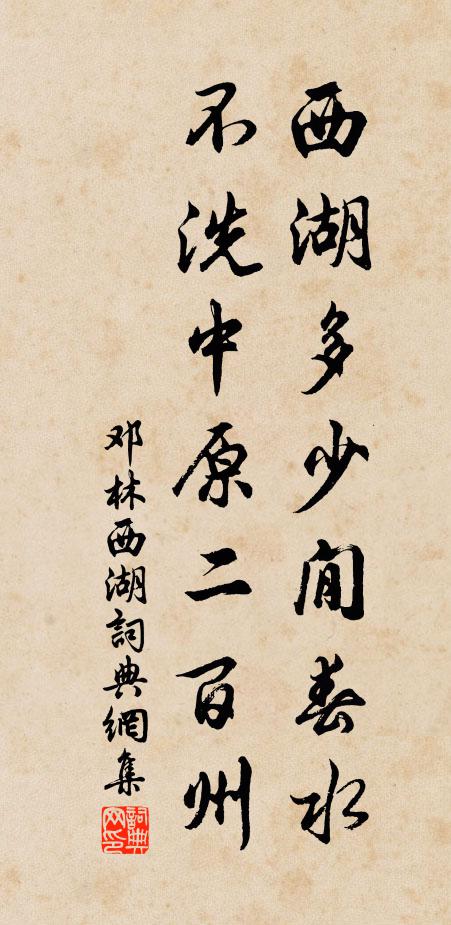 西湖多少閒春水
不洗中原二百州
邓林西湖詞典網集
詞典
网印